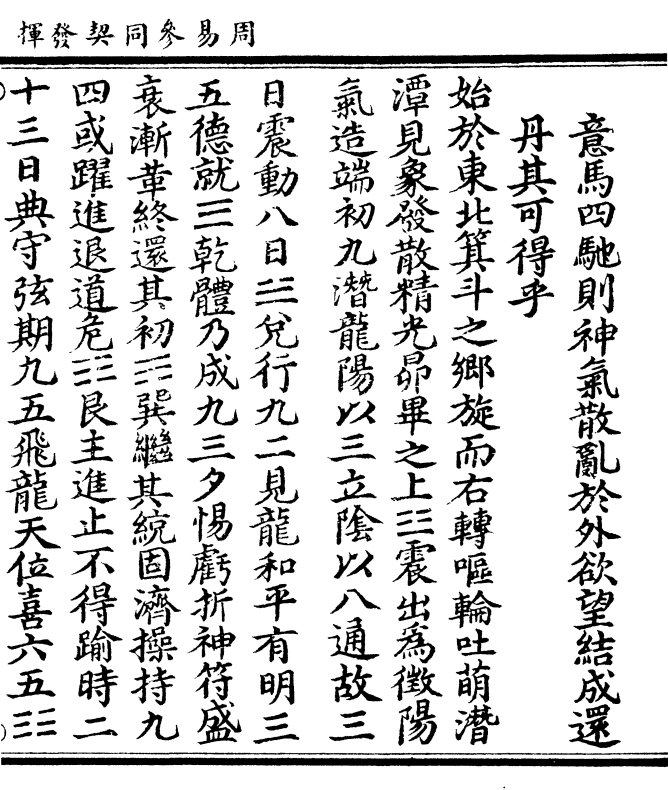 周易參同契發揮
意馬四馳則神氣散亂於外欲望結成還
丹其可得乎
始於東北箕斗之鄉旋而右轉嘔輪吐萌潛
潭見象發散精光昴畢之上☳震出爲徵陽
氣造端初九潛龍陽以三立陰以八通故三
日震動八日☱兌行九二見龍和平有明三
五德就☰乾體乃成九三夕惕虧折神符盛
衰漸革終還其初☴巽繼其統固濟操持九
四或躍進退道危☶艮主進止不得踰時二
十三日典守弦期九五飛龍天位喜六五☷